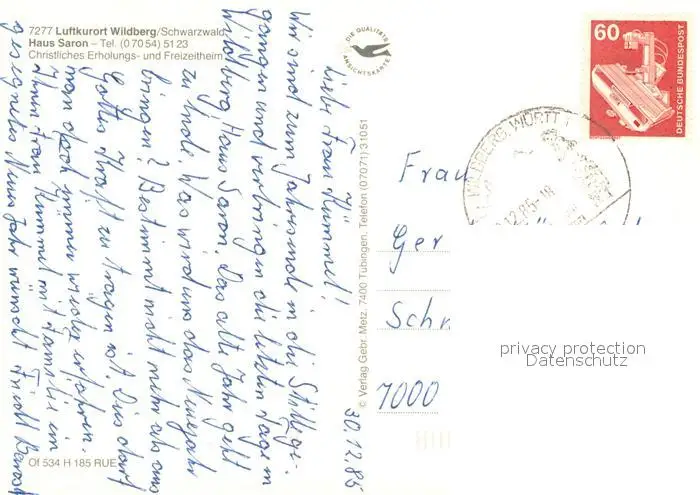 7277 Luftkurort Wildberg/Schwarzwald
Haus Saron – Tel. (07054) 5123
Christliches Erholungs- und Freizeitheim
DIE QUALITÄTS
ANSICHTSKARTE
60
DEUTSCHE BUNDESPOST
WILDBERG, WÜRTT
.12.85-18
30.12.85
Liebe Frau Kümmel!
Wir sind zum Jahresende in die Stille ge-
gangen und verbringen die letzten Tage in
Wildberg, Haus Saron. Das alte Jahr geht
zu Ende. Was wird uns das Neue Jahr
bringen? Bestimmt nicht mehr als uns
Gottes Kraft zu tragen ist. Dies darf
man doch immer wieder erfahren.
Ihnen Frau Kümmel mit Familie ein
gesegnetes Neues Jahr wünscht
© Verlag Gebr. Metz, 7400 Tübingen, Telefon (07071) 31051
Frau
Ger
Schr
7000
privacy protection
Datenschutz
Of 534 H 185 RUE